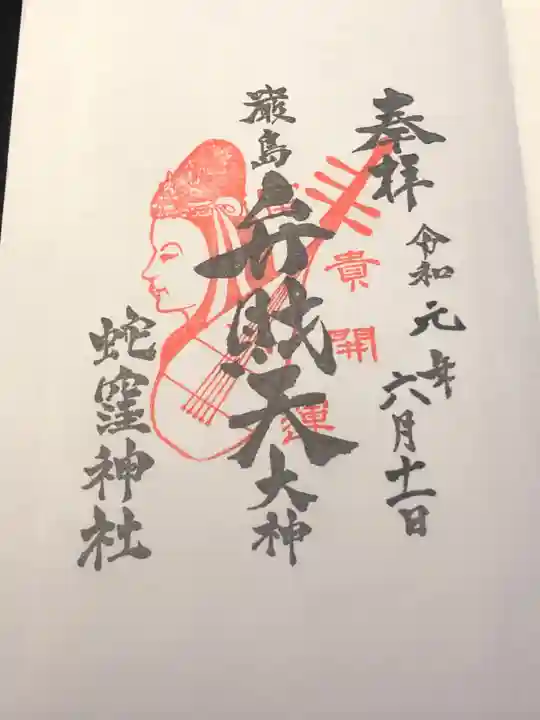 奉拝
令和元年六月十一日
貴開運
厳島弁財天大神
蛇窪神社